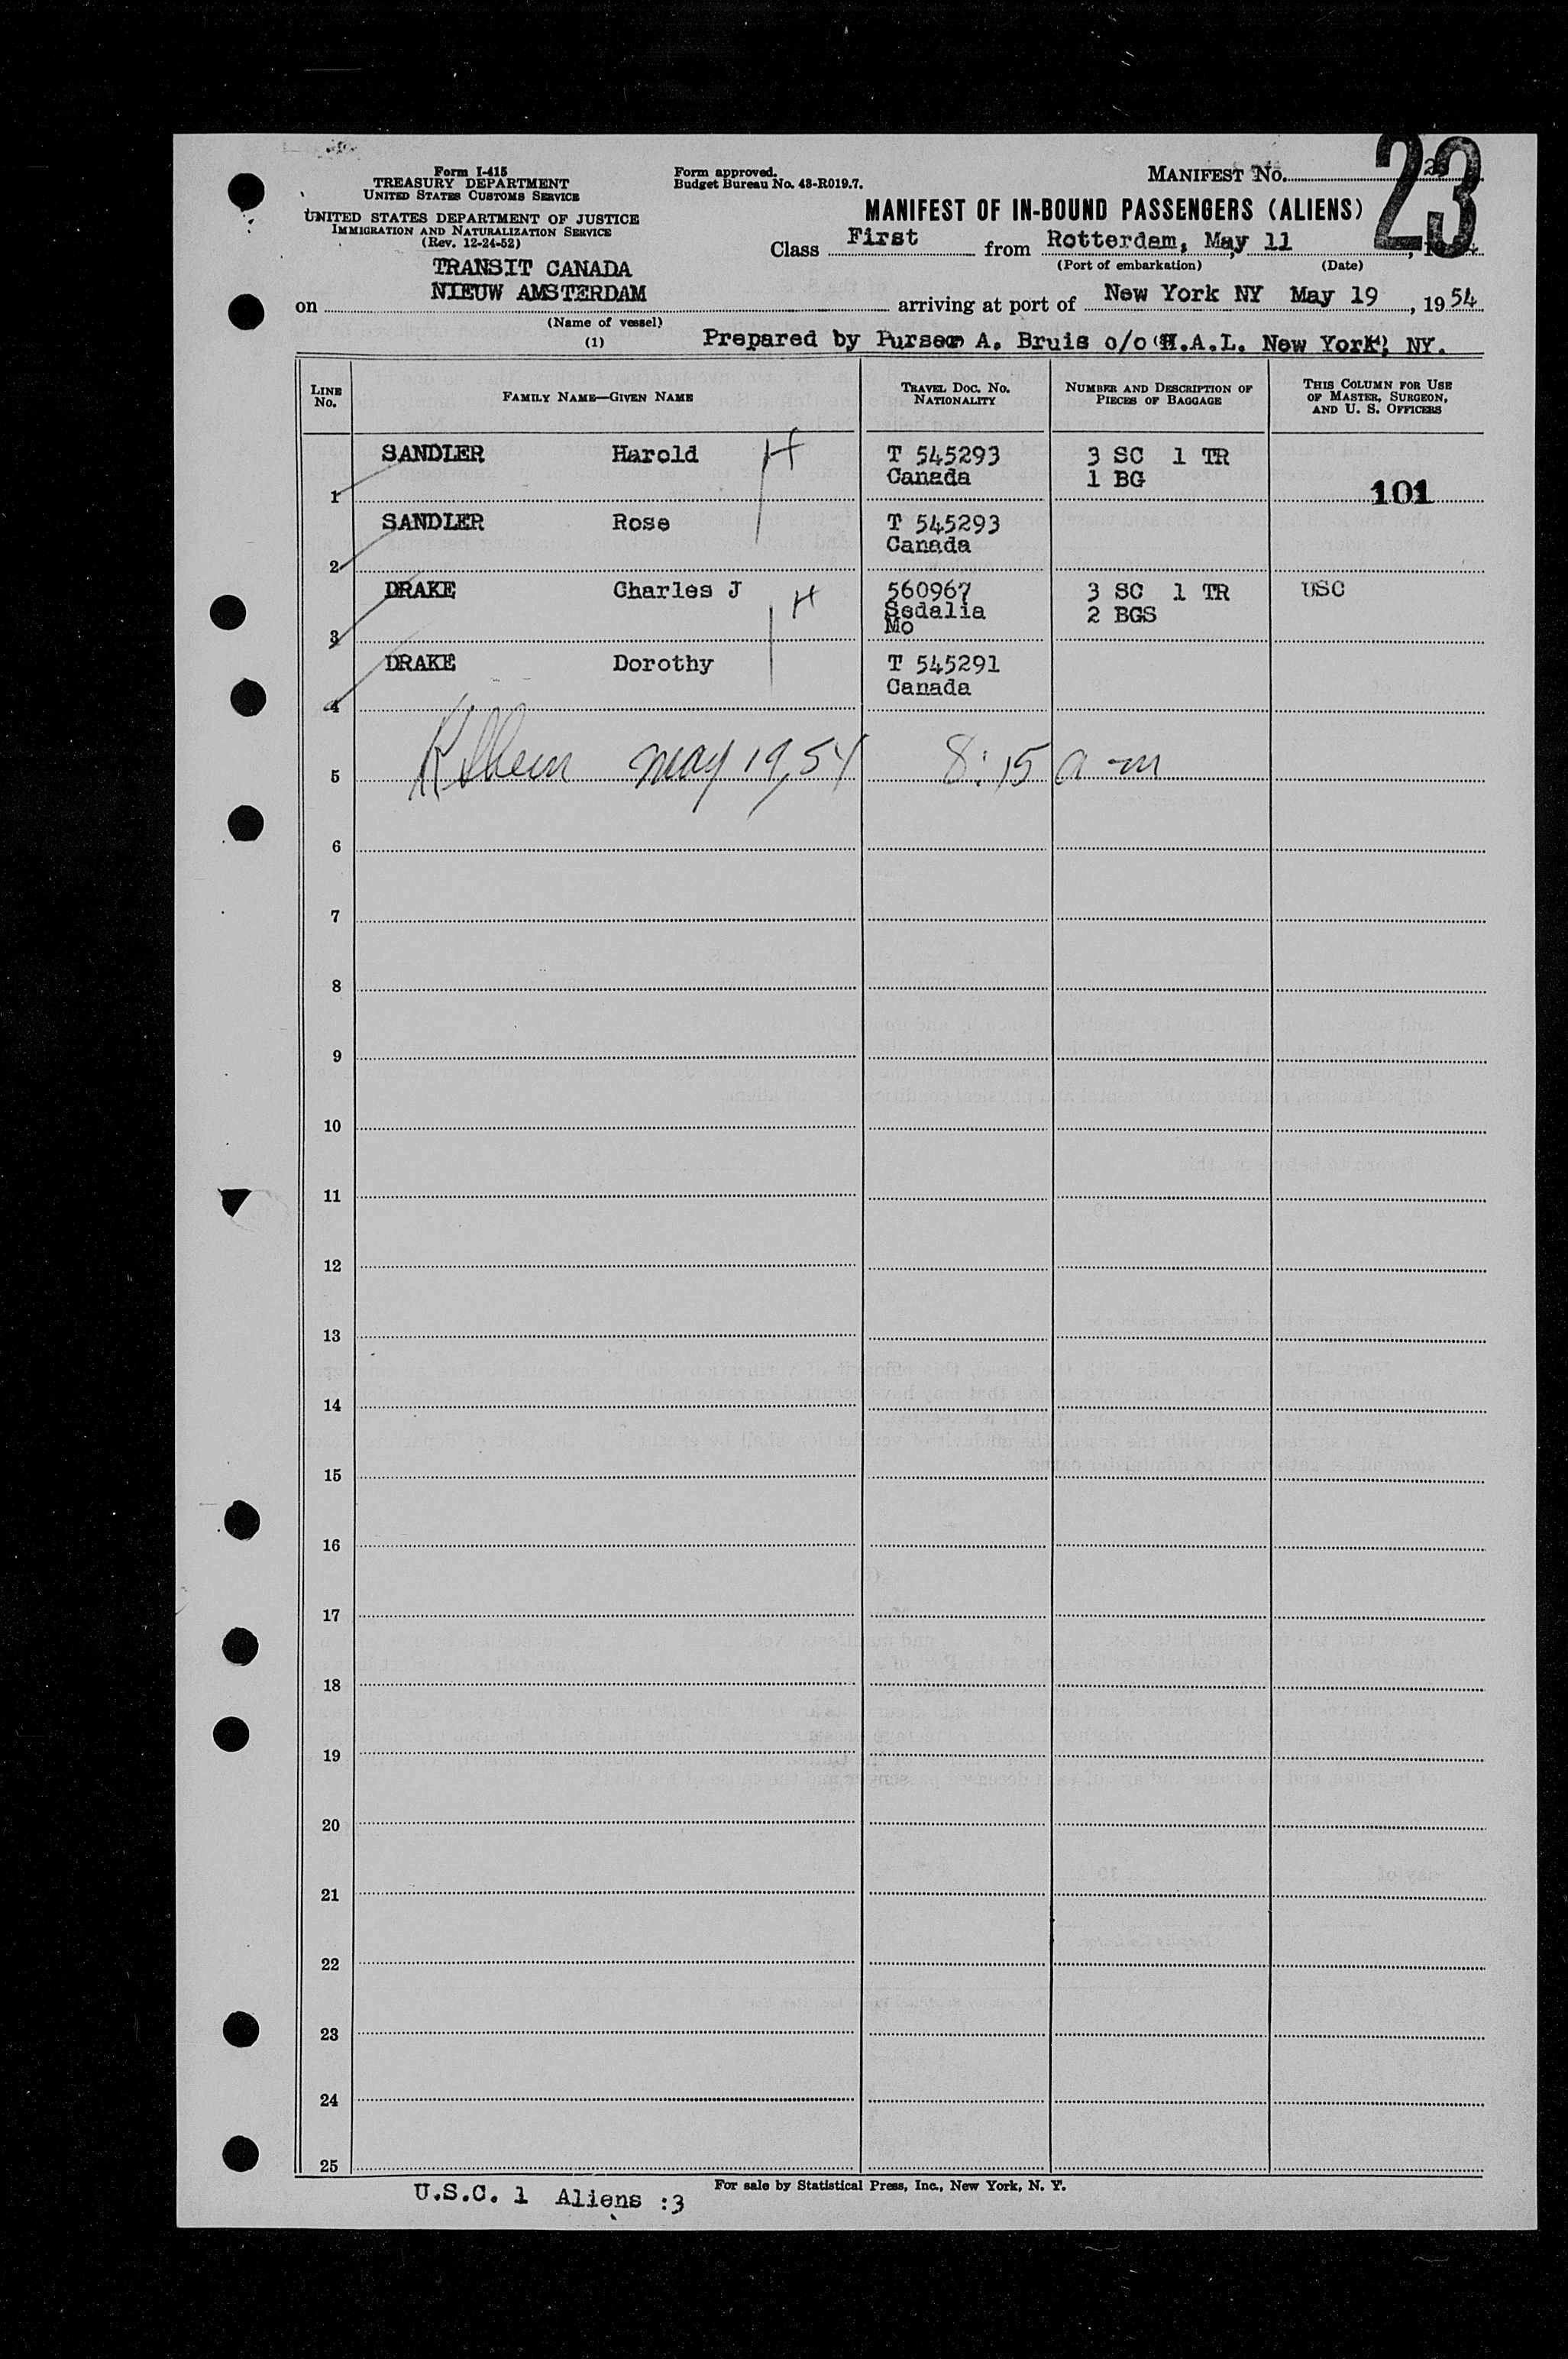 Form I-415
TREASURY DEPARTMENT
UNITED STATES CUSTOMS SERVICE
UNITED STATES DEPARTMENT OF JUSTICE
IMMIGRATION AND NATURALIZATION SERVICE
(Rev. 12-24-52)
Form approved.
Budget Bureau No. 43-R019.7.
MANIFEST No.
23
MANIFEST OF IN-BOUND PASSENGERS (ALIENS)
Class First from Rotterdam, May 11, 19
(Port of embarkation) (Date)
TRANSIT CANADA
on NIEUW AMSTERDAM arriving at port of New York NY May 19, 1954
(Name of vessel)
(1)
Prepared by Purser A. Bruis c/o H.A.L. New York, NY.
LINE No. FAMILY NAME—GIVEN NAME TRAVEL DOC. No. NATIONALITY NUMBER AND DESCRIPTION OF PIECES OF BAGGAGE THIS COLUMN FOR USE OF MASTER, SURGEON, AND U. S. OFFICERS
SANDLER Harold H T 545293 3 SC 1 TR
Canada 1 BG
1 101
SANDLER Rose T 545293
Canada
2
DRAKE Charles J H 560967 3 SC 1 TR USC
Sedalia 2 BGS
Mo
3
DRAKE Dorothy T 545291
Canada
4
5 May 19, 54 8:15 a-m
6
7
8
9
10
11
12
13
14
15
16
17
18
19
20
21
22
23
24
25
For sale by Statistical Press, Inc., New York, N. Y.
U.S.C. 1 Aliens :3